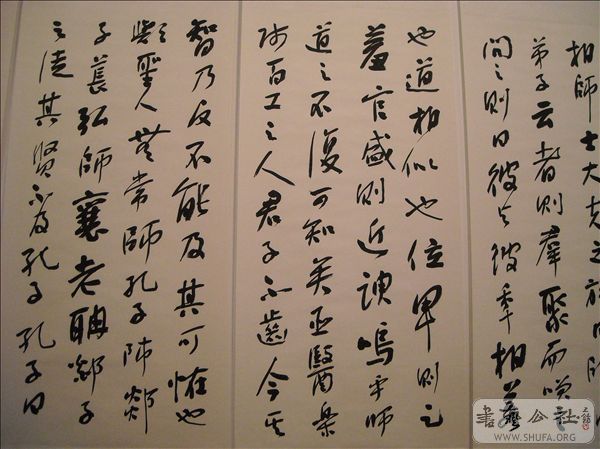 相師士大夫之族曰師
弟子云者則羣聚而笑之
問之則曰彼與彼年相若
也道相似也位卑則足
羞官盛則近諛嗚乎師
道之不復可知矣巫醫樂
師百工之人君子不齒今其
智乃反不能及其可恠也
歟聖人無常師孔子師郯
子萇弘師襄老聃郯子
之徒其賢不及孔子孔子曰
書法公社
WWW.SHUFA.ORG